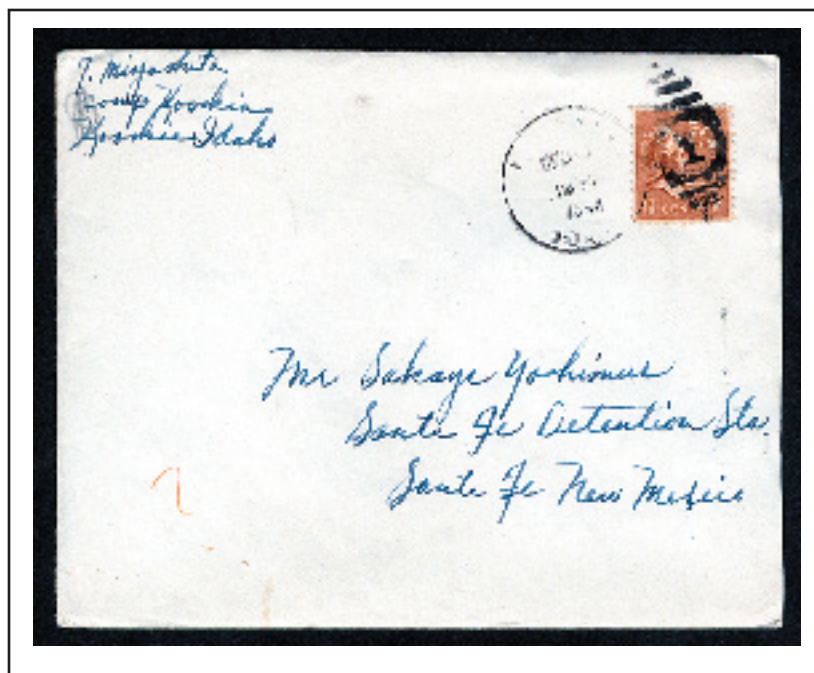 T. Miyashita
Camp Kooskia
Kooskia Idaho
Mr Sakaye Yoshimur
Santa Fe Detention Sta.
Santa Fe New Mexico